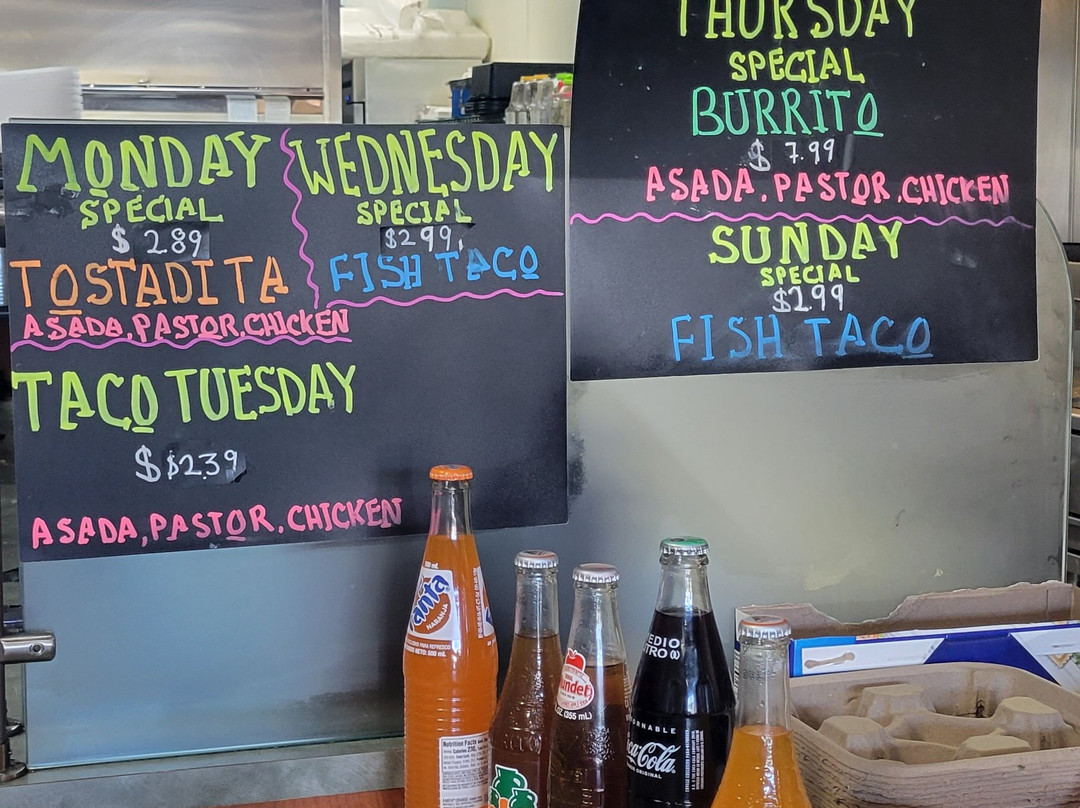 MONDAY
SPECIAL
$ 2.89
TOSTADITA
ASADA, PASTOR, CHICKEN
WEDNESDAY
SPECIAL
$2.99
FISH TACO
TACO TUESDAY
$ $2.39
ASADA, PASTOR, CHICKEN
THURSDAY
SPECIAL
BURRITO
$ 7.99
ASADA, PASTOR, CHICKEN
SUNDAY
SPECIAL
$2.99
FISH TACO
anta
NARANJA
500 mL
Nutrition Facts
undet
(355 mL)
EDIO
TRO
ORNABLE
Coca-Cola
ORIGINAL